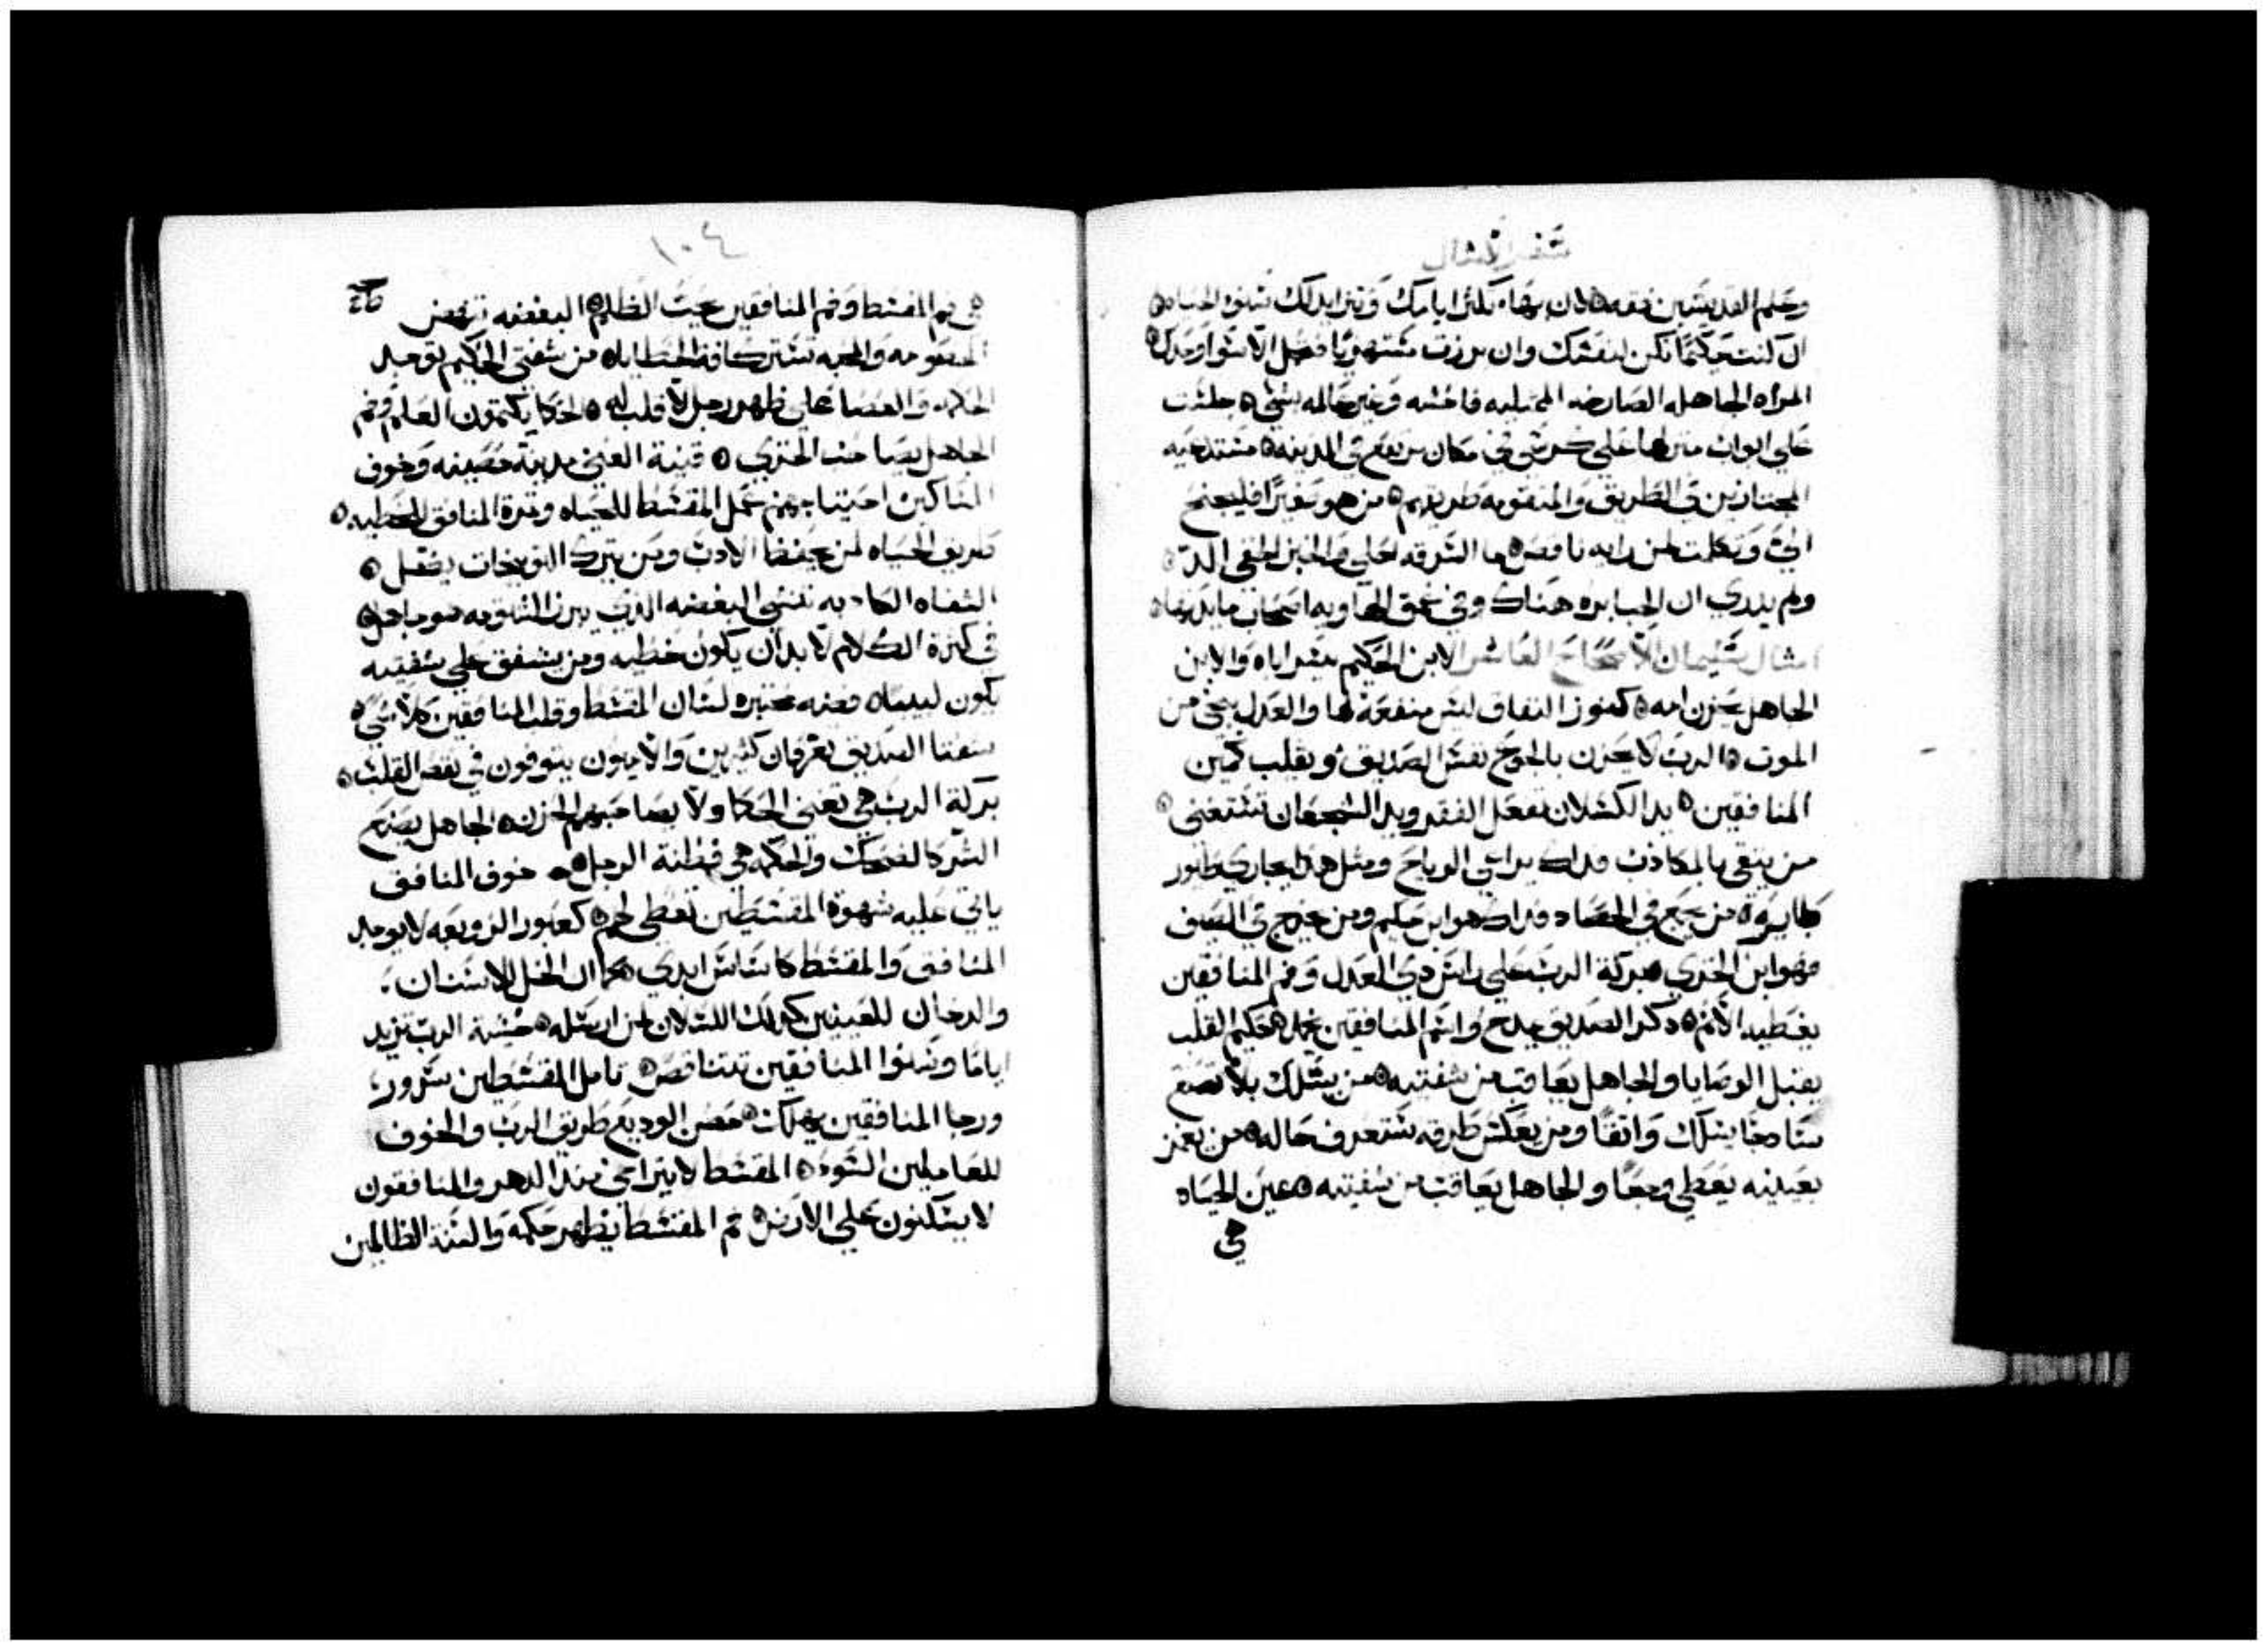 سفر الامثال
وحلم القديسين فقه لان بهاء تكثر ايامك وتتزايد لك سنوا الحياه
ان كنت حكيمًا تكن لنفسك وان برزت مستهزيًا فتحمل الاسوا وحدك
المراه الجاهله الصارخه الممتليه فاحشه وغير عالمه بشي جلست
علي ابواب منزلها علي كرسي في مكان مرتفع في المدينه مستدعيه
المجتازين في الطريق والمتقومه طريقهم من هو صغيرًا فليجنح
الي وتكلمت لمن رايه ناقص ما السرقه احلي والخبز الخفي الذ
ولم يدري ان الجبابره هناك وفي عمق الهاويه اصحاب مايدتها
امثال سليمان الاصحاح العاشر الابن الحكيم يسر اباه والابن
الجاهل يحزن امه كنوز النفاق ليس منفعة لها والعدل ينجي من
الموت الرب لا يحزن بالجوع نفس الصديق ويقلب كمين
المنافقين يد الكسلان تفعل الفقر ويد الشجعان تستغني
من يتقي بالمكاذب فذاك يراعي الرياح ومثل هذا يجاري طيور
طايره من يجمع في الحصاد فذاك هو ابن حكيم ومن يخرج في الصيف
فهو ابن الخزي بركة الرب علي راس ذي العدل وفم المنافقين
يغطيه الاثم ذكر الصديق بمدح واسم المنافقين يخمد حكيم القلب
يقبل الوصايا والجاهل يعاقب من شفتيه من يسلك بلا تصنع
ساذجًا يسلك واثقًا ومن يعكس طرقه ستعرف حاله من يغمز
بعينيه يعطي وجعًا والجاهل يعاقب من شفتيه عين الحياه
هي
١٠٤
هي فم المقسط وفم المنافقين تحت الظلم البغضه تنهض
الخصومه والمحبه تستر كافة الخطايا من شفتي الحكيم توجد
الحكمه والعصا علي ظهر رجل لا قلب له الحكما يكتمون العلم وفم
الجاهل يصاحب الخزي قنية الغني مدينة حصينه وخوف
المساكين احتياجهم عمل المقسط للحياه وثمرة المنافق للخطيه
طريق الحياه لمن يحفظ الادب ومن يترك التوبيخات يضل
الشفاه الكاذبه تنشي البغضه الذي يبرز الشتيمه هو جاهل
في كثرة الكلام لا بد ان يكون خطيه ومن يشفق علي شفتيه
يكون لبيبًا فضه مختبره لسان المقسط وقلب المنافقين كلا شي
شفتا الصديق يعرفان كثيرين والاميون يتوفون في نقص القلب
بركة الرب هي تغني الحكما ولا يصاحبهم الحزن الجاهل يصنع
الشر كالضحك والحكمه هي فطنة الرجل خوف المنافق
ياتي عليه شهوة المقسطين تعطي لهم كعبور الزوبعه لا يوجد
المنافق والمقسط كاساس ابدي كما ان الخل للاسنان
والدخان للعينين كذلك الكسلان لمن ارسله خشية الرب تزيد
ايامًا وسنوا المنافقين تتناقص تامل المقسطين سرور
ورجا المنافقين يهلك حصن الوديع طريق الرب والخوف
للعاملين السوء المقسط لا يتراخي مدا الدهر والمنافقون
لا يسكنون علي الارض فم المقسط يظهر حكمه والسنة الظالمين